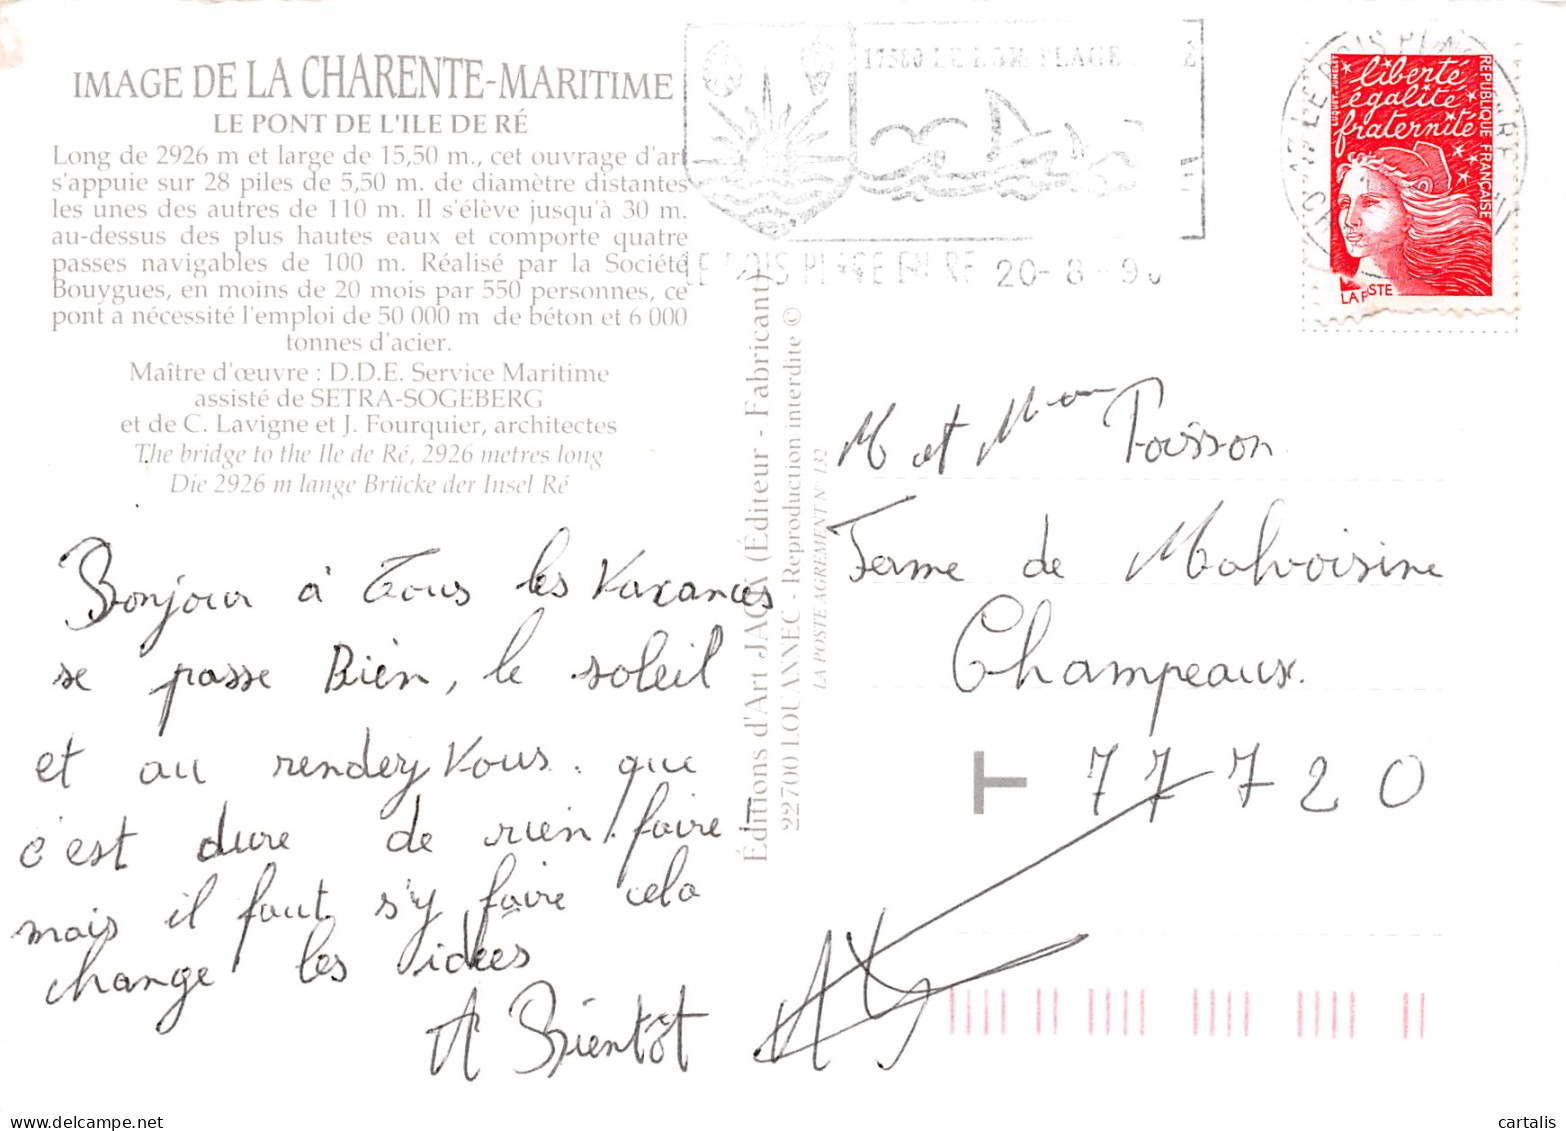 IMAGE DE LA CHARENTE-MARITIME
LE PONT DE L'ILE DE RÉ
Long de 2926 m et large de 15,50 m., cet ouvrage d'art
s'appuie sur 28 piles de 5,50 m. de diamètre distantes
les unes des autres de 110 m. Il s'élève jusqu'à 30 m.
au-dessus des plus hautes eaux et comporte quatre
passes navigables de 100 m. Réalisé par la Société
Bouygues, en moins de 20 mois par 550 personnes, ce
pont a nécessité l'emploi de 50 000 m de béton et 6 000
tonnes d'acier.
Maître d'œuvre : D.D.E. Service Maritime
assisté de SETRA-SOGEBERG
et de C. Lavigne et J. Fourquier, architectes
The bridge to the Ile de Ré, 2926 metres long
Die 2926 m lange Brücke der Insel Ré
Bonjour à Tous les Vacances
se passe Bien, le soleil
et au rendez Vous. que
c'est dure de rien faire
mais il faut s'y faire cela
change les idées
A Bientôt
Éditions d'Art JACK (Éditeur - Fabricant)
22700 LOUANNEC - Reproduction interdite ©
LA POSTE AGREMENT N° 132
17580 LE BOIS PLAGE
LE BOIS PLAGE EN RE 20-8-9
liberté
égalité
fraternité
REPUBLIQUE FRANÇAISE
LA POSTE
M et Mme Poisson
Ferme de Malvoisine
Champeaux.
T 77720
cartalis
https://www.delcampe.net